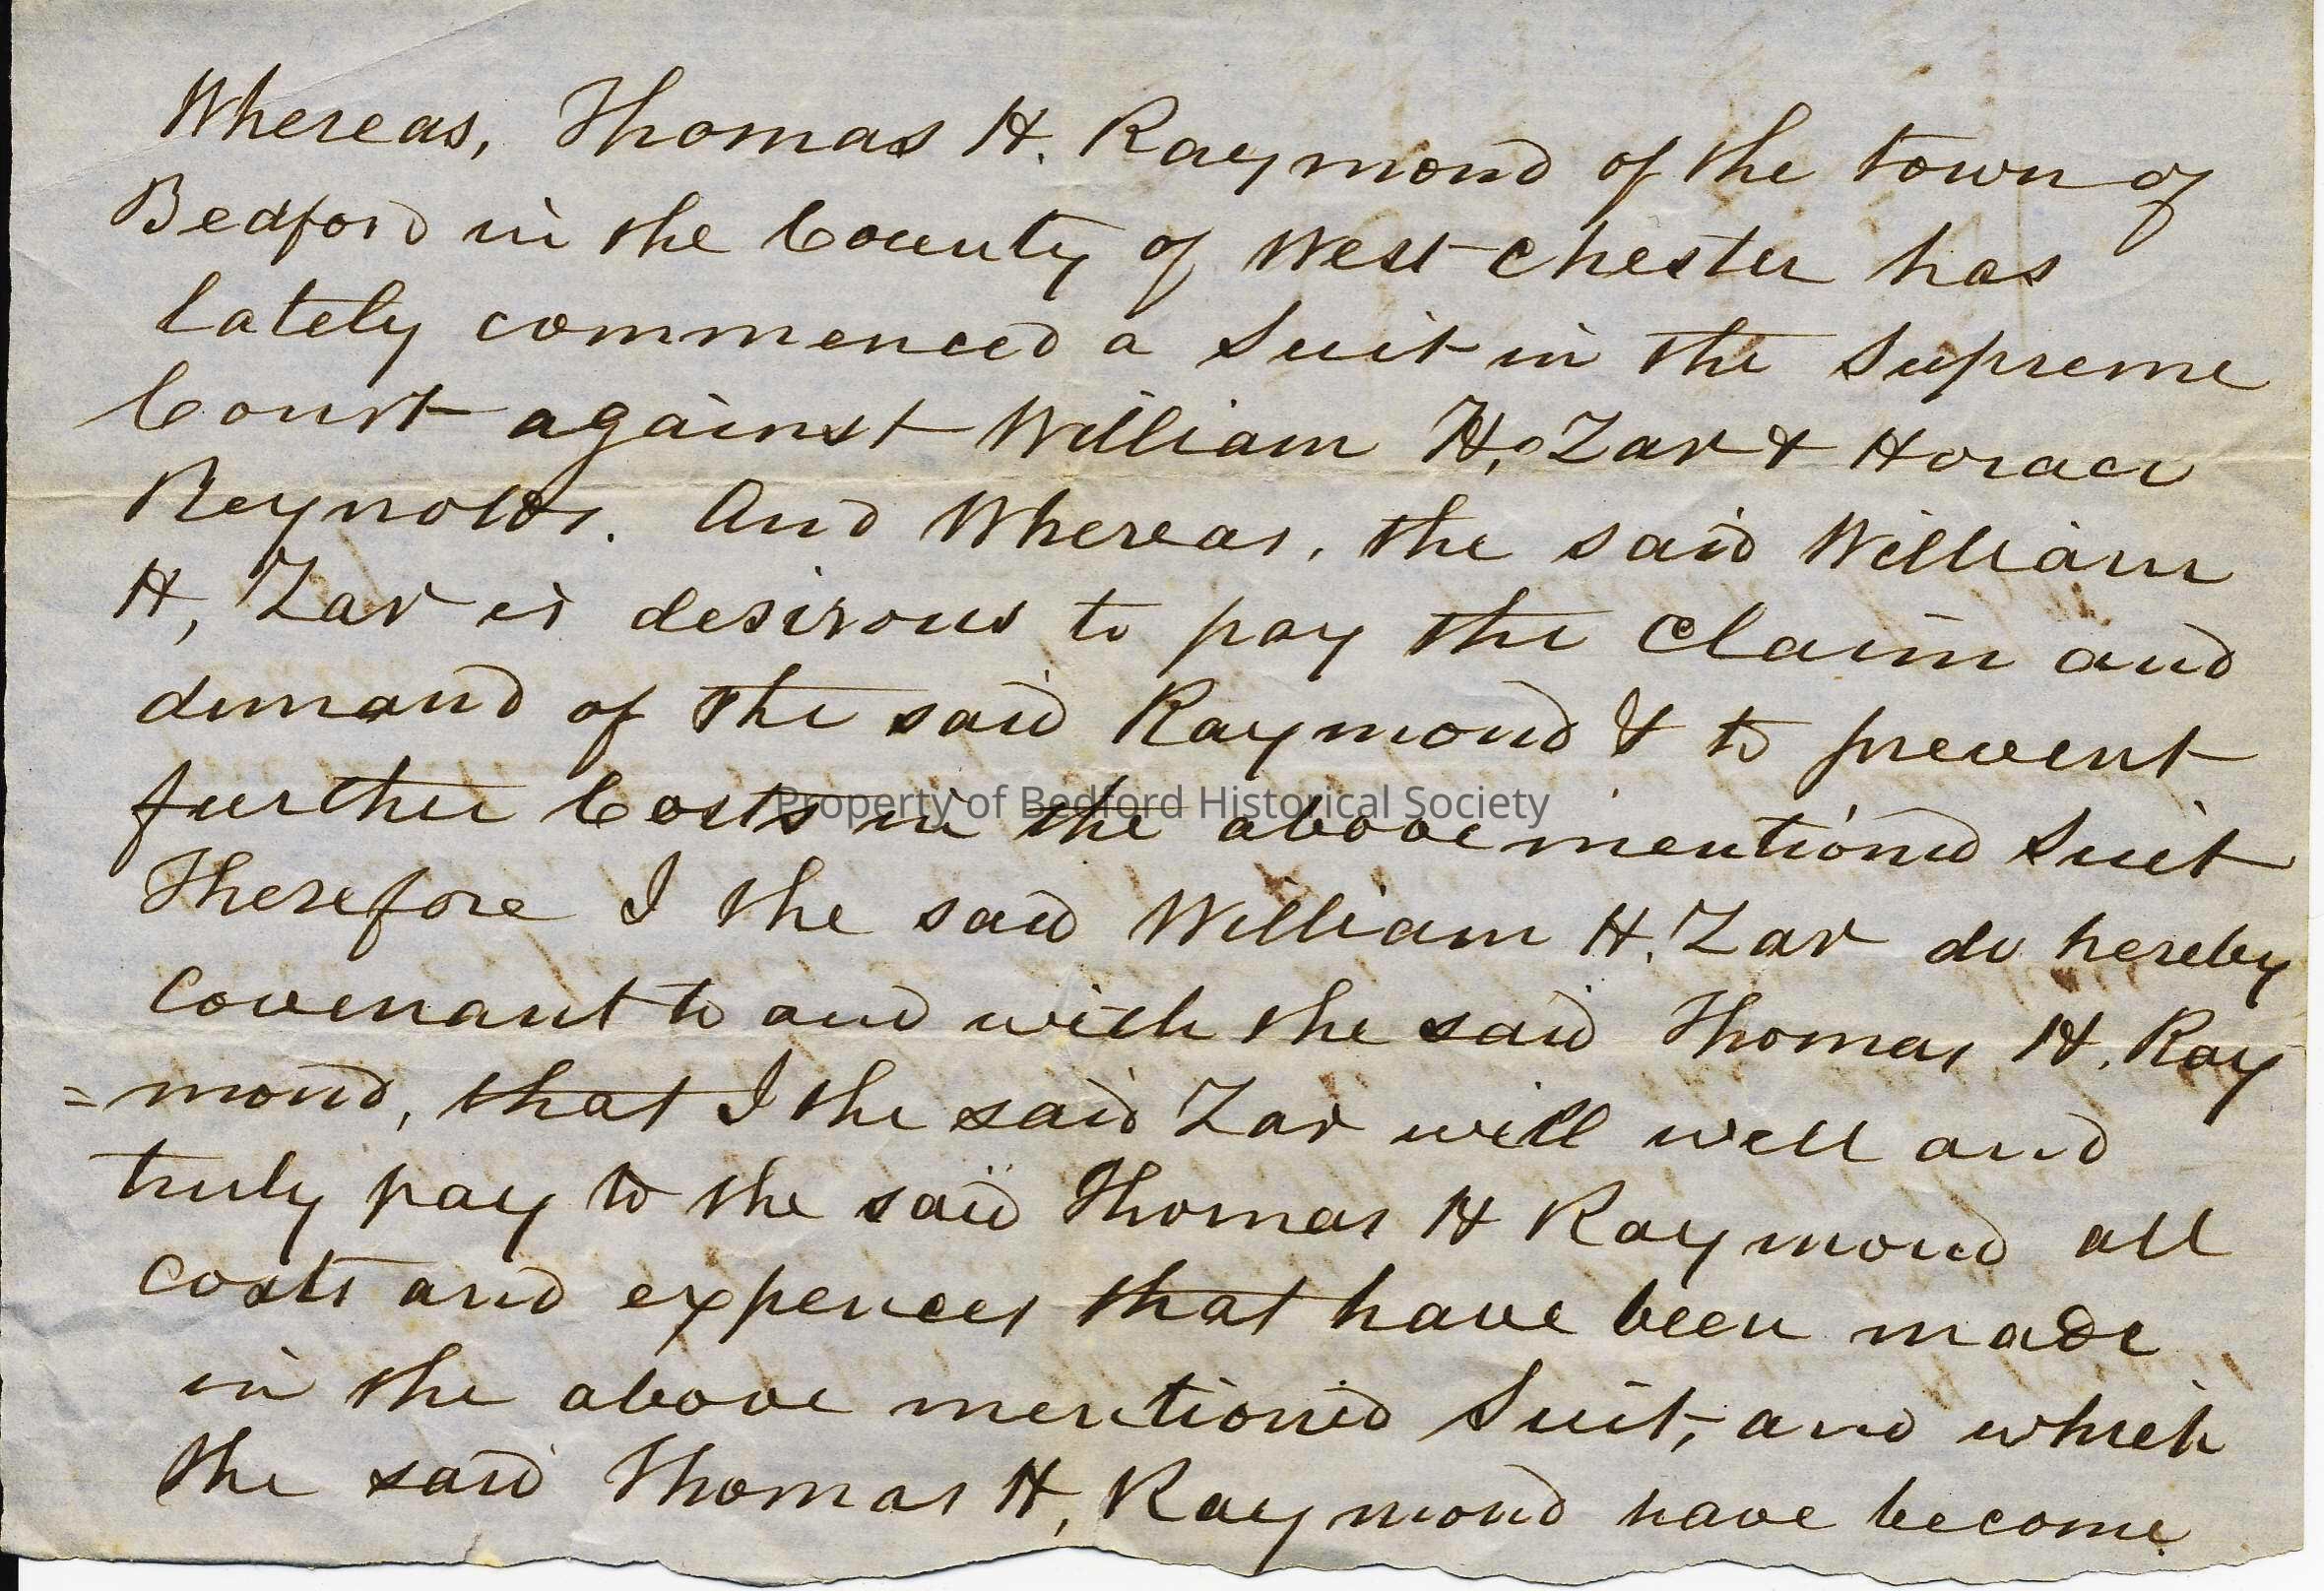 Whereas, Thomas H. Raymond of the town of
Bedford in the County of West Chester has
lately commenced a Suit in the Supreme
Court against William H. Zar & Horace
Reynolds. And Whereas, the said William
H, Zar is desirous to pay the Claim and
demand of the said Raymond & to prevent
further Costs in the above mentioned Suit
Property of Bedford Historical Society
Therefore I the said William H. Zar do hereby
Covenant to and with the said Thomas H. Ray
=mond, that I the said Zar will well and
truly pay to the said Thomas H Raymond all
costs and expences that have been made
in the above mentioned Suit, and which
the said Thomas H, Raymond have become